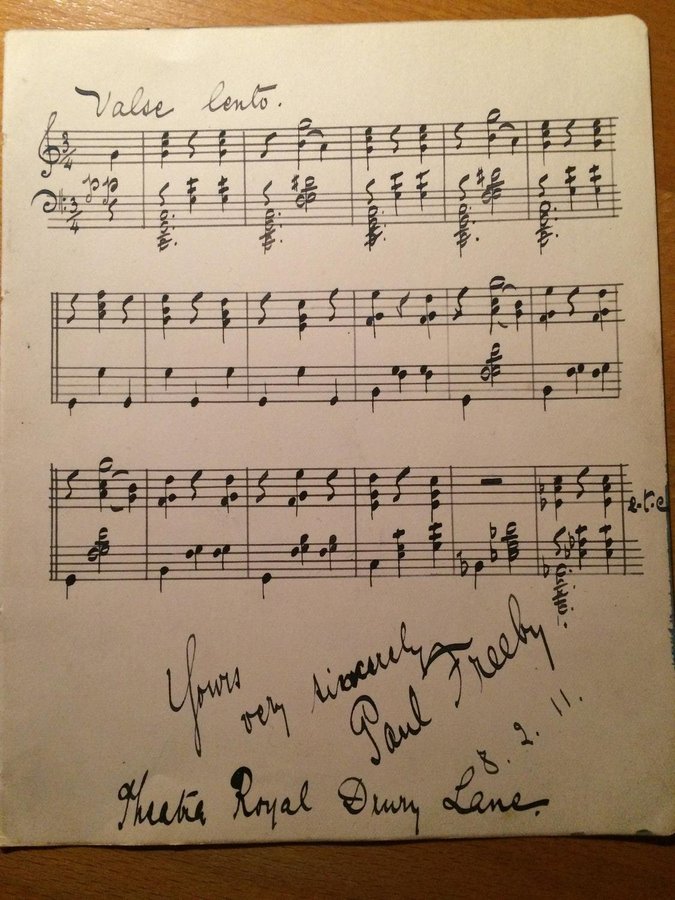 Valse lento.
3/4
pp
3/4
e.t.c
Yours
very sincerely
Paul Freeby
8.2.11.
Theatre Royal Drury Lane.